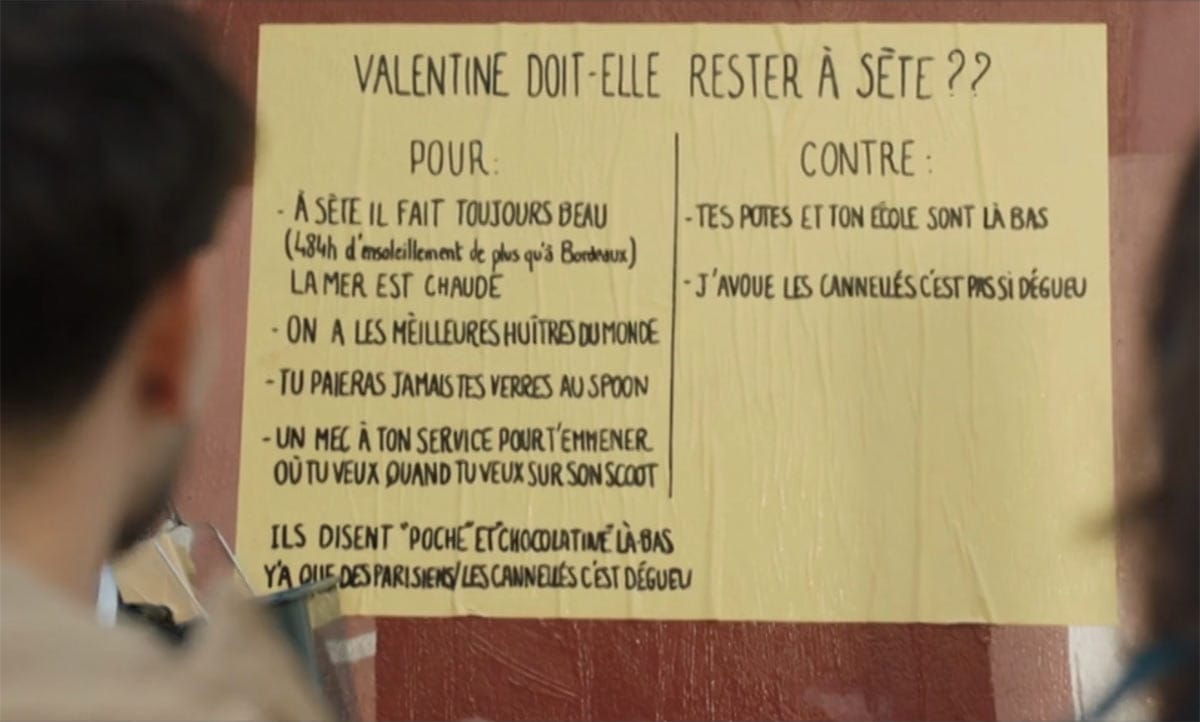 VALENTINE DOIT-ELLE RESTER À SÈTE ??
POUR :
- À SÈTE IL FAIT TOUJOURS BEAU
(484h d'ensoleillement de plus qu'à Bordeaux)
LA MER EST CHAUDE
- ON A LES MÈILLEURES HUÎTRES DU MONDE
- TU PAIERAS JAMAIS TES VERRES AU SPOON
- UN MEC À TON SERVICE POUR T'EMMENER
OÙ TU VEUX QUAND TU VEUX SUR SON SCOOT
ILS DISENT "POCHE" ET "CHOCOLATINE" LÀ-BAS
Y'A QUE DES PARISIENS/LES CANNELLÉS C'EST DÉGUEU
CONTRE :
- TES POTES ET TON ECOLE SONT LÀ BAS
- J'AVOUE LES CANNELLÉS C'EST PAS SI DÉGUEU